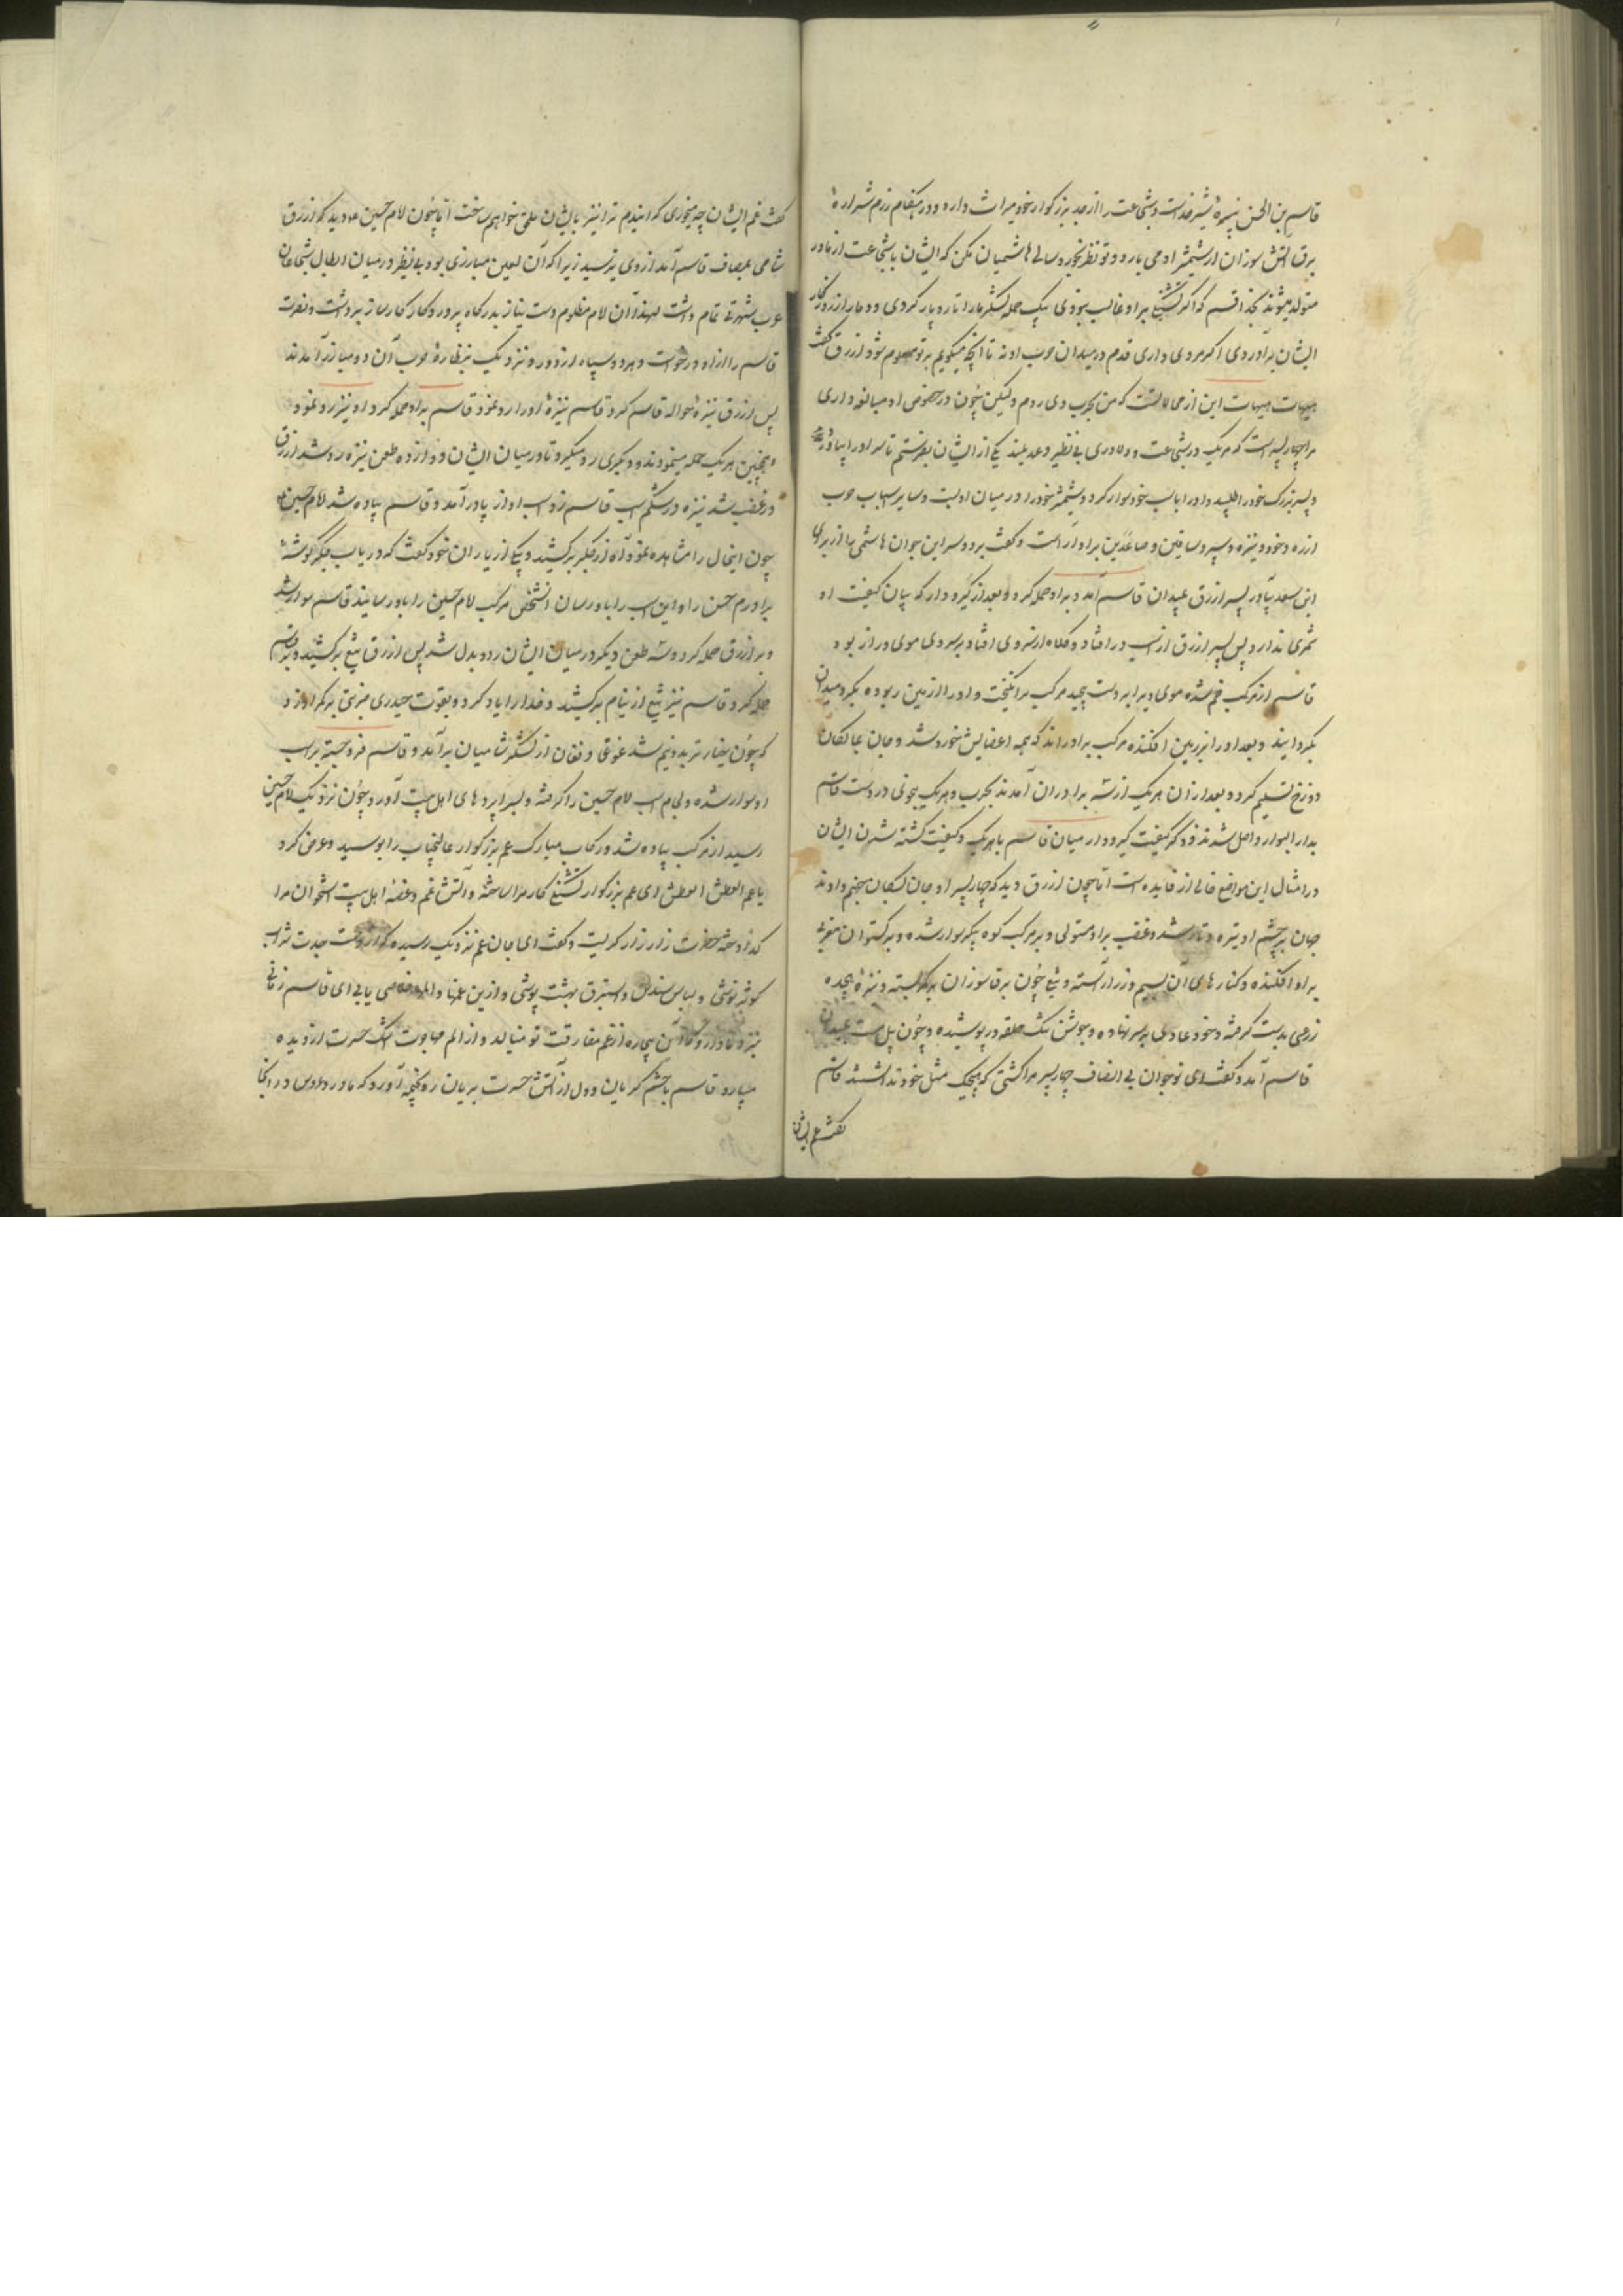 قاسم بن الحسن نبیره شیر خداست و شجاعت را از جد بزرگوار خود میراث دارد و در هنگام رزم شراره
برق آتش سوزان از شمشیر او می بارد و تو نظر بخردسالی هاشمیان مکن که ایشان با شجاعت از مادر
متولد میشوند بخدا قسم که اگر تشنگی بر او غالب نبودی بیک حمله لشکر ما را تار و پار کردی و دمار از روزگار
ایشان برآوردی اگر مردی داری قدم در میدان حرب او نه تا آنچه میگویم بر تو معلوم شود ازرق گفت
هیهات هیهات این از محالاتست که من بحرب وی روم ولیکن چون در خصوص او مبالغه داری
مرا چهار پسر است که هر یک در شجاعت و دلاوری بی نظیر و عدیلند یکی از ایشان بفرستم تا سر او را بیاورد
و پسر بزرگ خود را طلبید و او را با اسب خود سوار کرد و شمشیر خود را در میان او بست و سایر اسباب حرب
از زره و خود و نیزه و سپر و ساقین و صاعدین بر او آراست و گفت برو و سر این جوان هاشمی را از برای
ابن سعد بیاور پسر ازرق بمیدان قاسم آمد و بر او حمله کرد و بعد از گیر و دار که بیان کیفیت او
ثمری ندارد پس پسر ازرق از اسب در افتاد و کلاه از سر وی افتاد بر سر وی موی دراز بود
قاسم از مرکب خم شده موی ویرا بر دست پیچید مرکب برانگیخت و او را از زمین ربوده بگرد میدان
بگردانید و بعد او را بر زمین افکنده مرکب بر او راند که همه اعضایش خورد شد و جان بمالکان
دوزخ تسلیم کرد و بعد از آن هر یک از سه برادران آمدند بحرب و هر یک بنوعی در دست قاسم
بدار البوار واصل شدند و ذکر کیفیت گیر و دار میان قاسم با هر یک و کیفیت کشته شدن ایشان
در امثال این مواقع خالی از فایده است اما چون ازرق دید که چهار پسر او جان بسگان جهنم دادند
جهان بر چشم او تیره و تار شد و غضب بر او مستولی و بر مرکب کوه پیکر سوار شده و برگستوان مغربی
بر او افکنده و کنارهای آن بسیم و زر آراسته و تیغ چون برق سوزان بر کمر بسته و نیزه هیجده
زرعی بدست گرفته و خود عادی بر سر نهاده و جوشن تنگ حلقه در پوشیده و چون پیل مست بمیدان
قاسم آمد و گفت ای نوجوان بی انصاف چهار پسر مرا کشتی که هیچیک مثل خود نداشتند قاسم
گفت غم ایشان
گفت غم ایشان چه میخوری که ایندم ترا نیز بایشان ملحق خواهم ساخت اما چون امام حسین ع دید که ازرق
شامی بمصاف قاسم آمد از وی بترسید زیرا که آن لعین مبارزی بود بی نظیر و در میان ابطال شجاعان
عرب شهرتی تمام داشت لهذا آن امام مظلوم دست نیاز بدرگاه پروردگار کارساز برداشت و نصرت
قاسم را از او درخواست و هر دو سپاه از دور و نزدیک بنظاره حرب آن دو مبارز آمدند
پس ازرق نیزه حواله قاسم کرد قاسم نیزه او را رد نمود قاسم بر او حمله کرد او نیز رد نمود
و همچنین هر یک حمله مینمودند و دیگری رد میکرد تا در میان ایشان دوازده طعن نیزه رد شد ازرق
در غضب شد نیزه در شکم اسب قاسم زد اسب او از پا در آمد و قاسم پیاده شد امام حسین ع
چون اینحال را مشاهده نمود آه از جگر برکشید و یکی از یاران خود گفت که دریاب جگرگوشه
برادرم حسن را و این اسب را باو رسان آنشخص مرکب امام حسین را باو رسانید قاسم سوار شد
و بر ازرق حمله کرد و سه طعن دیگر در میان ایشان رد و بدل شد پس ازرق تیغ برکشید و بر قاسم
حمله کرد قاسم نیز تیغ از نیام برکشید و خدا را یاد کرد و بقوت حیدری ضربتی بر کمر او زد
که چون خیار تر بدو نیم شد غوغا و فغان از لشکر شامیان برآمد و قاسم فرو جسته بر اسب
او سوار شده و لجام اسب امام حسین را گرفته و بسراپردهای اهل بیت آورد و چون نزدیک امام حسین
رسید از مرکب پیاده شد و رکاب مبارک عم بزرگوار عالیجناب را بوسید و عرض کرد
یا عم العطش العطش ای عم بزرگوار تشنگی کار مرا ساخته و آتش غم و غصه اهل بیت استخوان مرا
گداخته حضرت زار زار گریست و گفت ای جان عم نزدیک رسیده که از دست جدت شراب
کوثر نوشی و لباس سندس و استبرق بهشت پوشی و ازین غمها و المها خلاصی یابی ای قاسم زمانی
نزد مادر رو که آن بیچاره از غم مفارقت تو مینالد و از الم مهاجرت اشک حسرت از دیده
میبارد قاسم با چشم گریان و دل از آتش حسرت بریان رو بخیمه آورد که مادر و عروس در آنجا